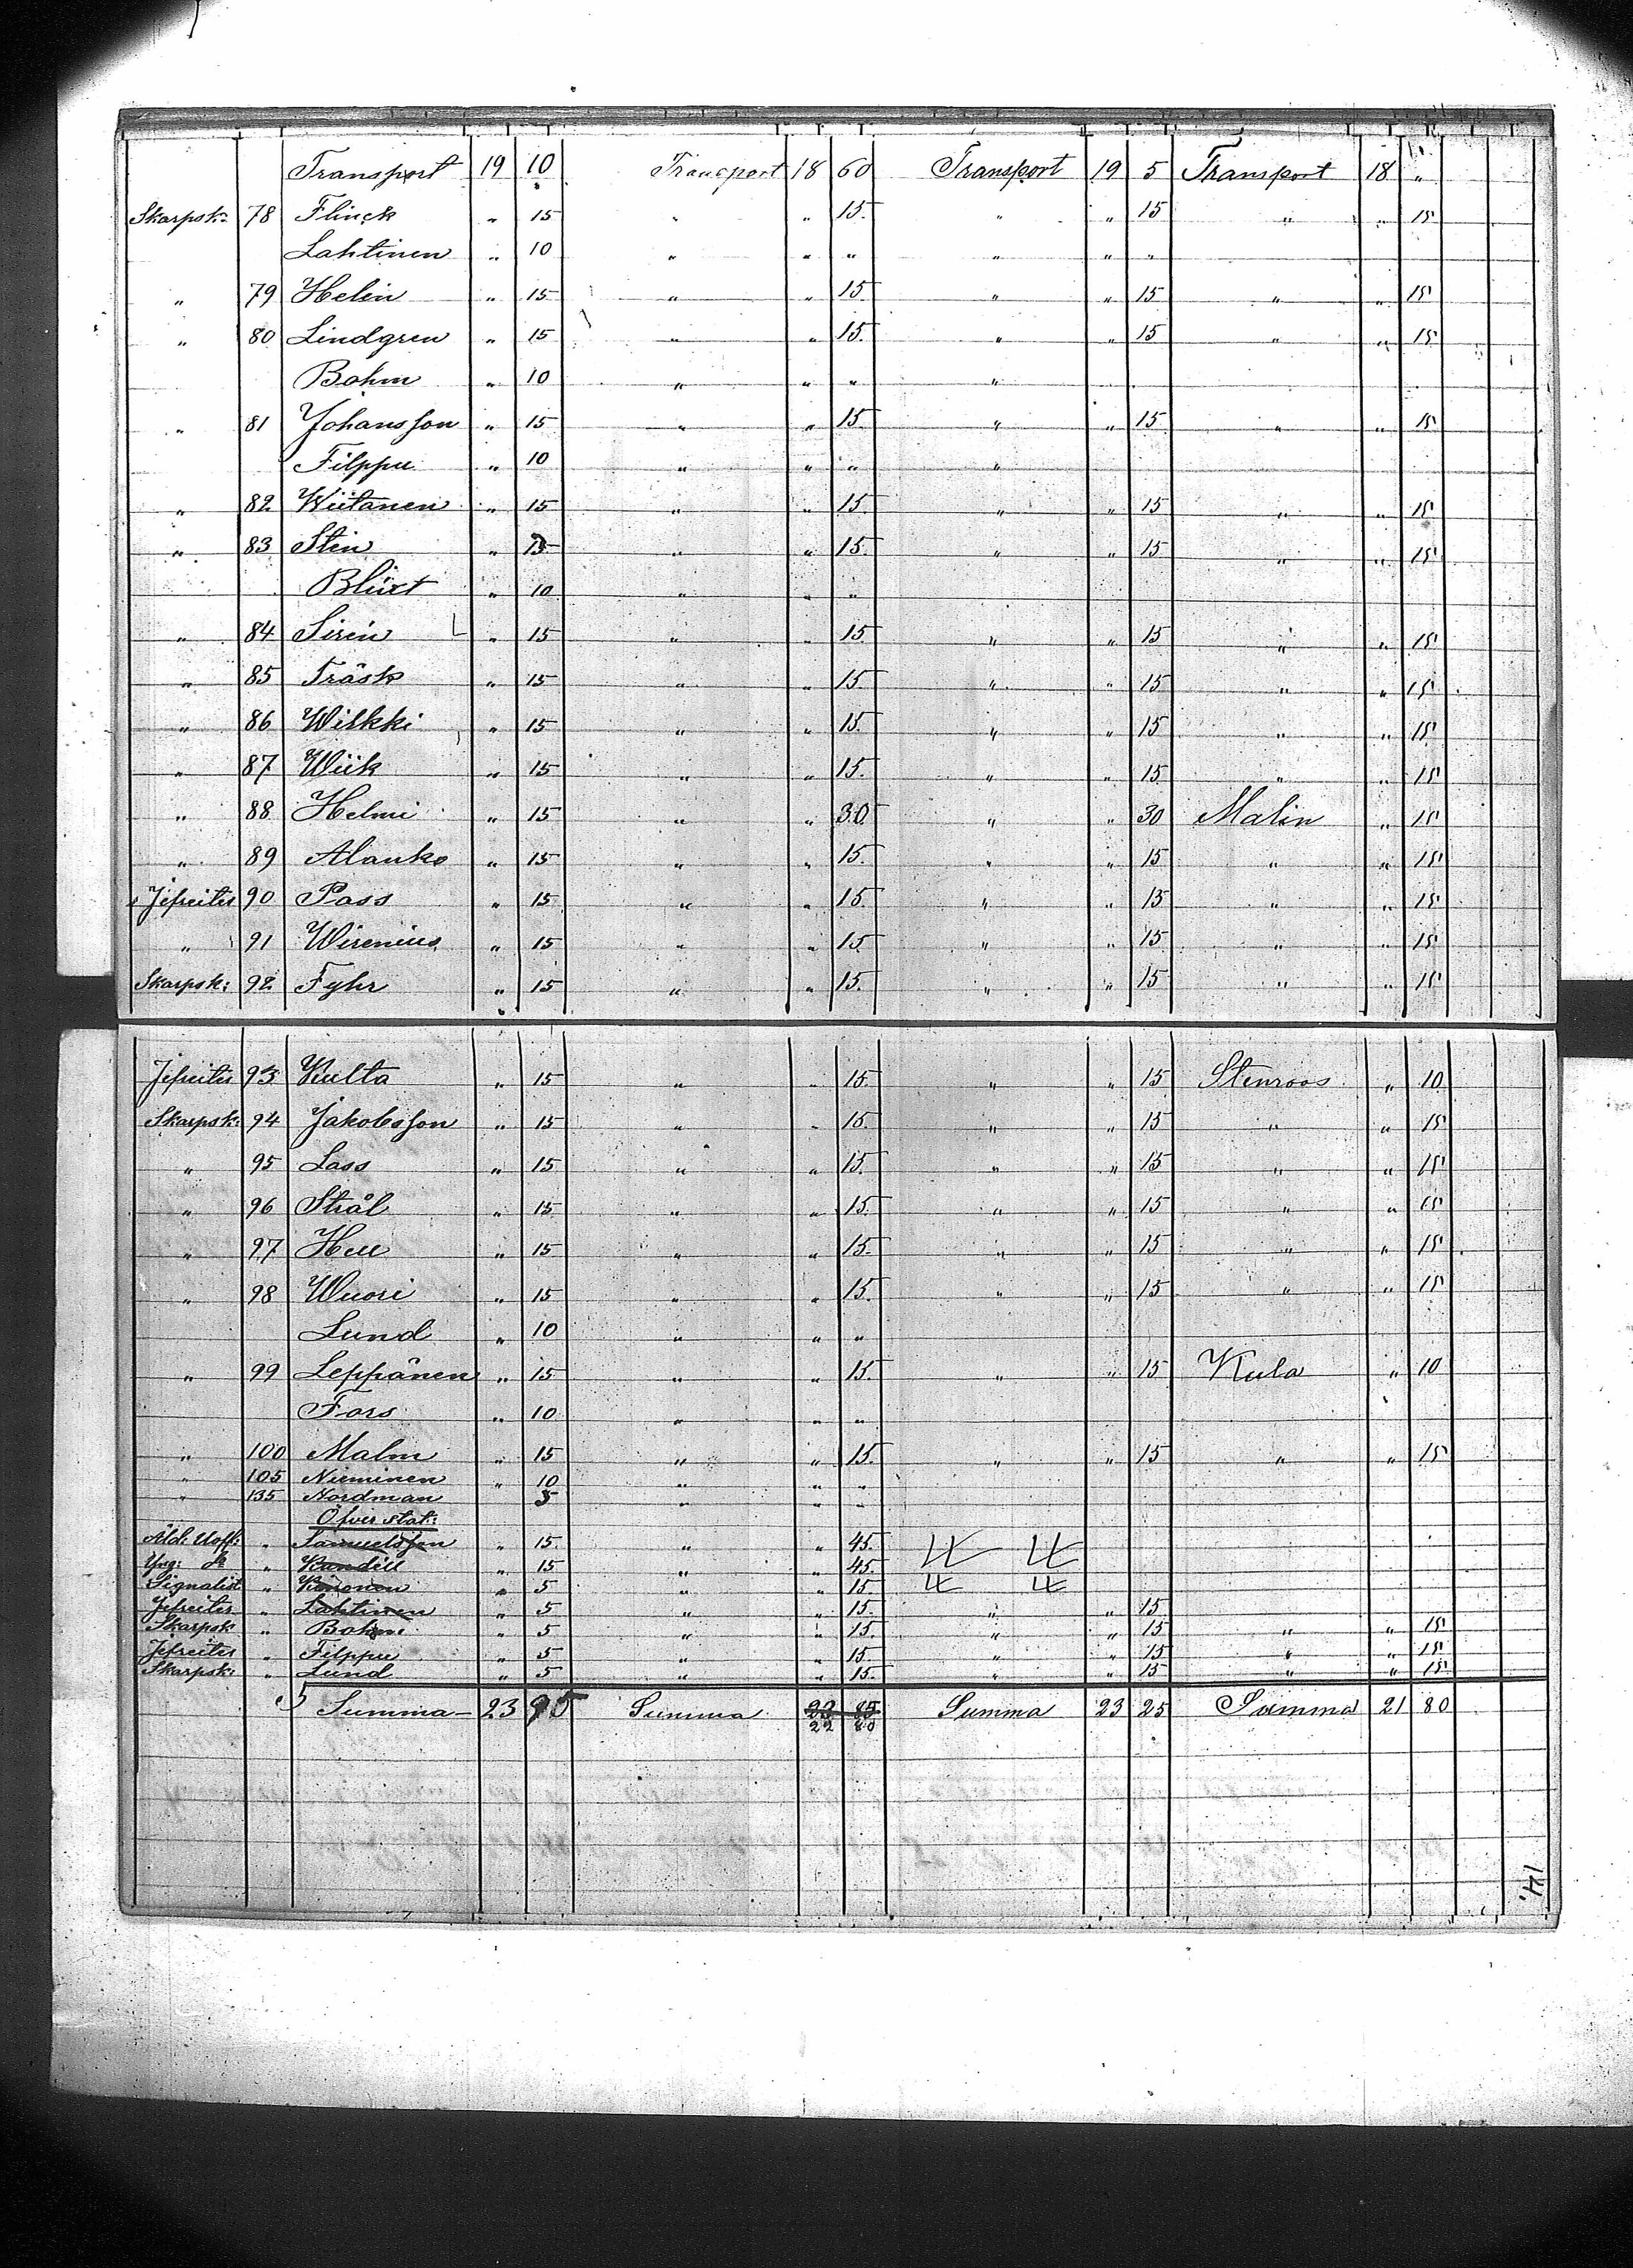 Transport 19 10 Transport 18 60 Transport 19 5 Transport 18 "
Skarpsk: 78 Flinck " 15 " " 15. " " 15 " " 15
Lahtinen " 10 " " " " " "
" 79 Helin " 15 " " 15. " " 15 " " 15
" 80 Lindgren " 15 " " 15. " " 15 " " 15
Bohm " 10 " " " "
" 81 Johansson " 15 " " 15 " " 15 " " 15
Filppu " 10 " " " "
" 82 Wiitanen " 15 " " 15. " " 15 " " 15
" 83 Sten " 15 " " 15. " " 15 " " 15
Blixt " 10 " " "
" 84 Sirén " 15 " " 15 " " 15 " " 15
" 85 Träsk " 15 " " 15. " " 15 " " 15
" 86 Wirkki " 15 " " 15. " " 15 " " 15
" 87 Wiik " 15 " " 15. " " 15 " " 15
" 88 Helmi " 15 " " 30 " " 30 Malin " 15
" 89 Alanko " 15 " " 15. " " 15 " " 15
Jefreiter 90 Pass " 15 " " 15 " " 15 " " 15
" 91 Wirenius " 15 " " 15 " " 15 " " 15
Skarpsk: 92 Fyhr " 15 " " 15. " " 15 " " 15
Jefreiter 93 Kulta " 15 " " 15. " " 15 Stenroos " 10
Skarpsk: 94 Jakobsson " 15 " " 15. " " 15 " " 15
" 95 Lass " 15 " " 15. " " 15 " " 15
" 96 Strål " 15 " " 15. " " 15 " " 15
" 97 " 15 " " 15. " " 15 " " 15
" 98 Wuori " 15 " " 15. " " 15 " " 15
Lund " 10 " " "
" 99 Leppänen " 15 " " 15. " " 15 Kula " 10
Fors " 10 " " "
" 100 Malm " 15 " " 15. " " 15 " " 15
" 105 Nieminen " 10 " " "
" 135 Nordman 5 " " "
Öfver stat:
Äld: Uoff: " Samuelsson " 15 " " 45.
Yng: d:o " " 15 " " 45.
Signalist " " 5 " " 15.
Jefreiter " Lahtinen " 5 " " 15. " " 15
Skarpsk " Bohm " 5 " " 15. " " 15 " " 15
Jefreiter " Filppu " 5 " " 15. " " 15 " " 15
Skarpsk: " Lund " 5 " " 15. " " 15 " " 15
Summa 23 95 Summa 23 85 Summa 23 25 Summa 21 80
22 80
171.